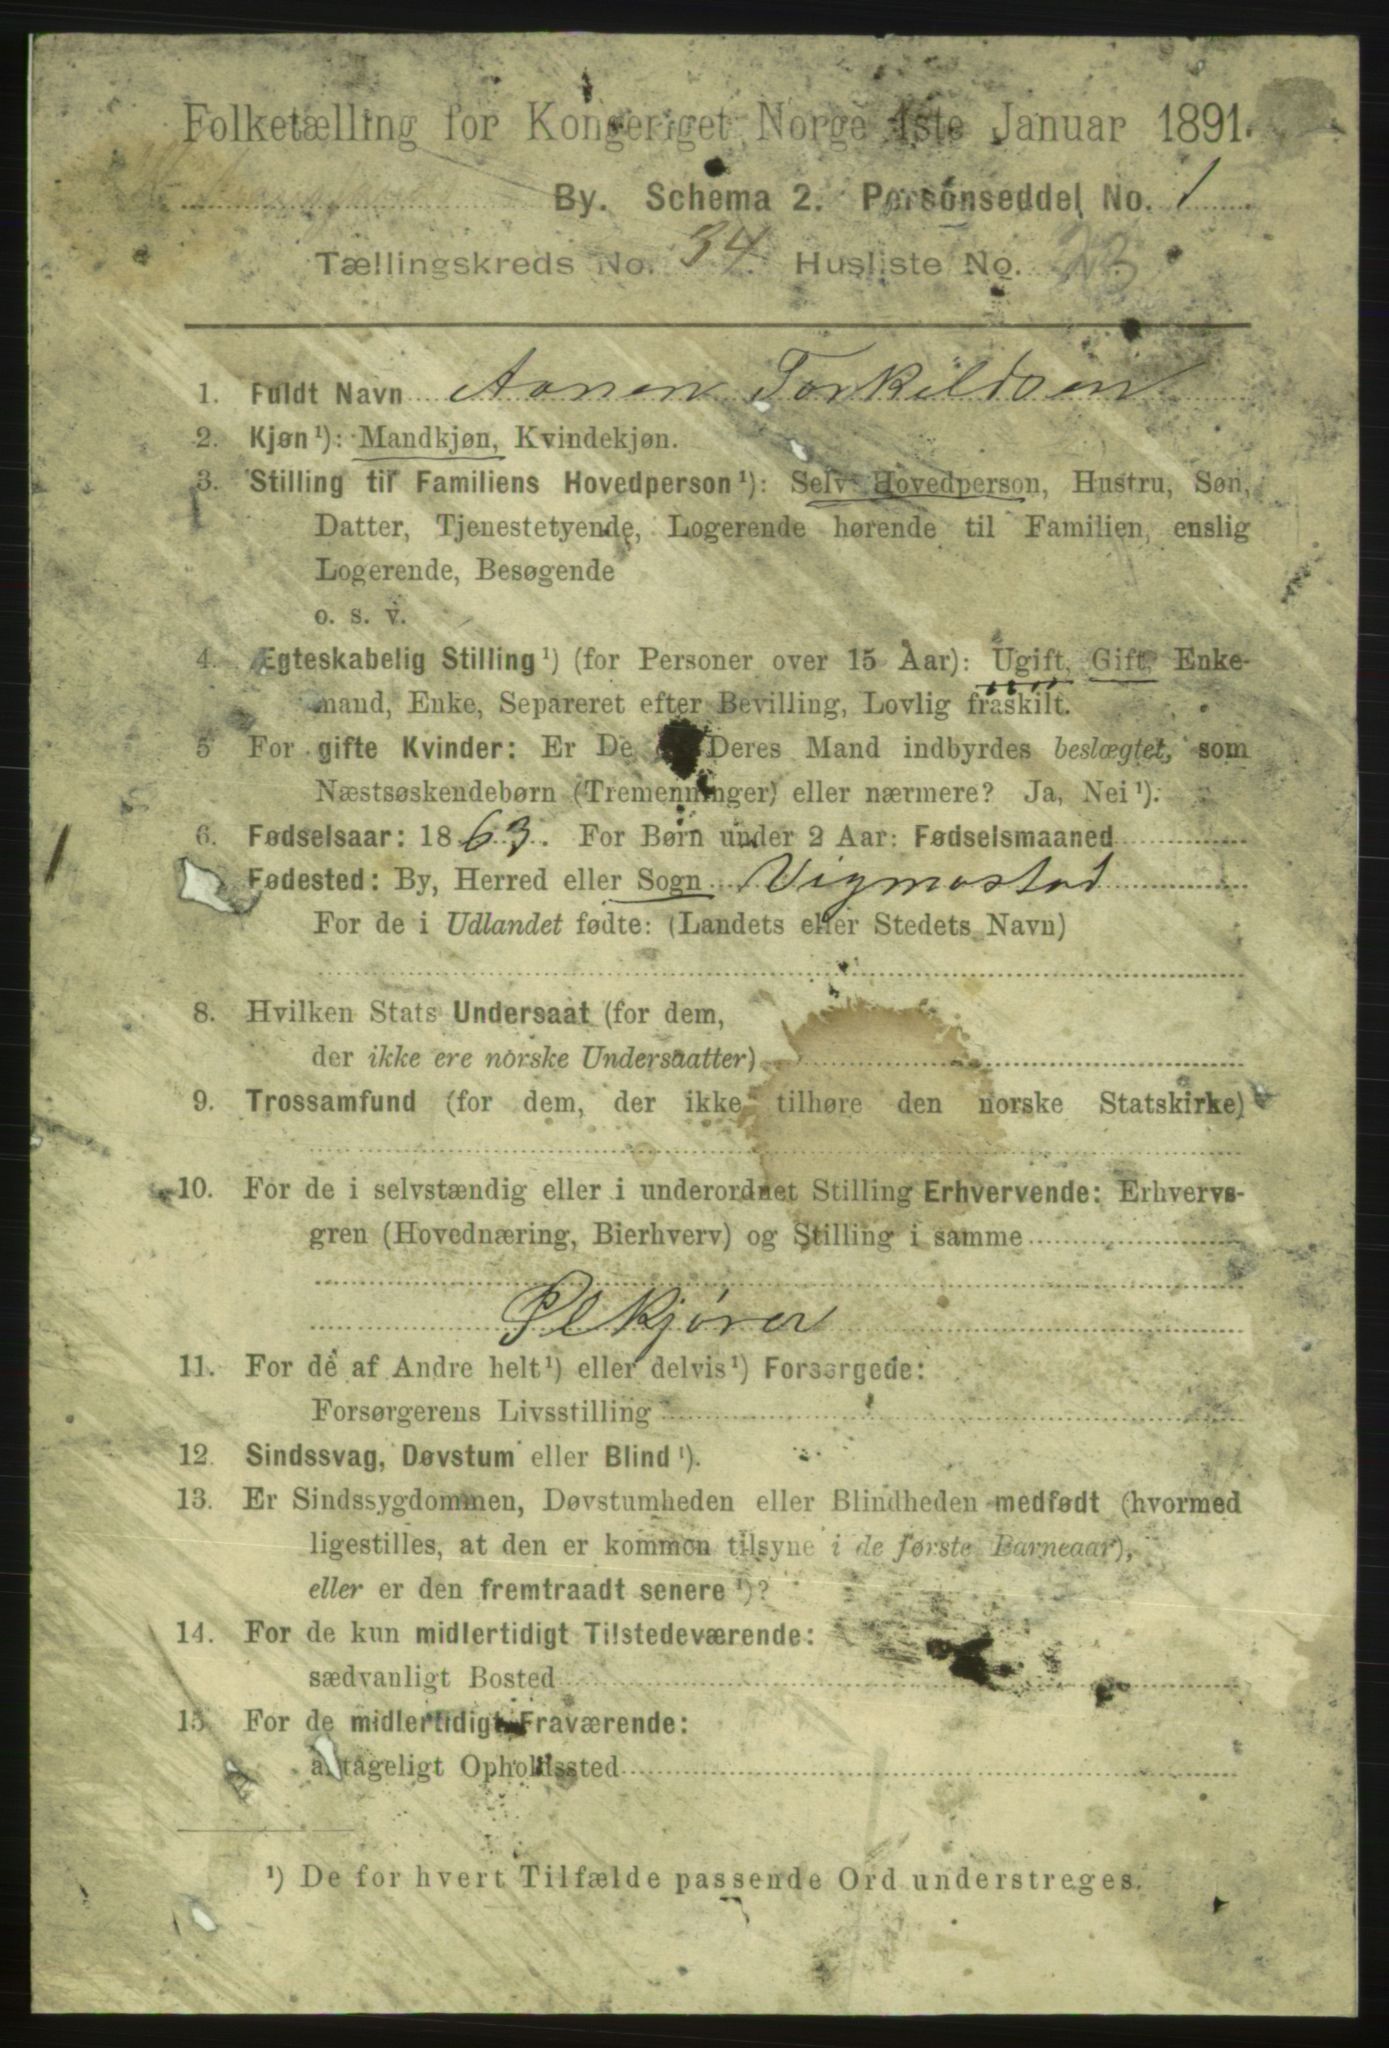 Folketælling for Kongeriget Norge 1ste Januar 1891.
By. Schema 2. Personseddel No. 1
Tællingskreds No. 34 Husliste No. 23
1. Fuldt Navn Aanen Torkildsen
2. Kjøn¹): Mandkjøn, Kvindekjøn.
3. Stilling til Familiens Hovedperson¹): Selv Hovedperson, Hustru, Søn,
Datter, Tjenestetyende, Logerende hørende til Familien, enslig
Logerende, Besøgende
o. s. v.
4. Ægteskabelig Stilling¹) (for Personer over 15 Aar): Ugift, Gift, Enke-
mand, Enke, Separeret efter Bevilling, Lovlig fraskilt.
5 For gifte Kvinder: Er De Deres Mand indbyrdes beslægtet, som
Næstsøskendebørn (Tremenninger) eller nærmere? Ja, Nei¹).
6. Fødselsaar: 1863. For Børn under 2 Aar: Fødselsmaaned
Fødested: By, Herred eller Sogn Vigmostad
For de i Udlandet fødte: (Landets eller Stedets Navn)
8. Hvilken Stats Undersaat (for dem,
der ikke ere norske Undersaatter)
9. Trossamfund (for dem, der ikke tilhøre den norske Statskirke)
10. For de i selvstændig eller i underordnet Stilling Erhvervende: Erhvervs-
gren (Hovednæring, Bierhverv) og Stilling i samme
Ølkjører
11. For de af Andre helt¹) eller delvis¹) Forsørgede:
Forsørgerens Livsstilling
12. Sindssvag, Døvstum eller Blind¹).
13. Er Sindssygdommen, Døvstumheden eller Blindheden medfødt (hvormed
ligestilles, at den er kommen tilsyne i de første Barneaar),
eller er den fremtraadt senere¹)?
14. For de kun midlertidigt Tilstedeværende:
sædvanligt Bosted
15. For de midlertidigt Fraværende:
antageligt Opholdssted
¹) De for hvert Tilfælde passende Ord understreges.